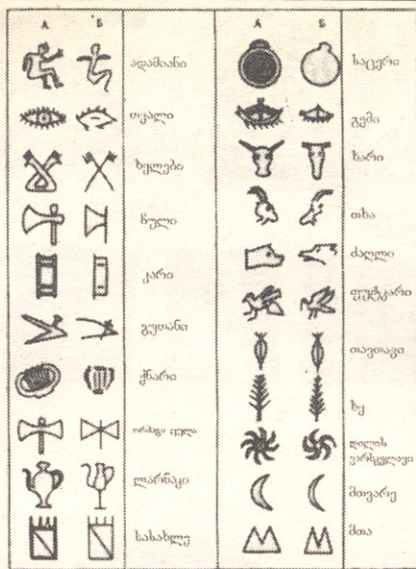 А Б
ადამიანი
თვალი
ხელები
ცული
კარი
გუთანი
ქნარი
ლარნაკი
სასახლე
А Б
საცერი
გემი
ხარი
თხა
ძაღლი
ფუტკარი
თავთავი
ხე
დილის
ვარსკვლავი
მთვარე
მთა